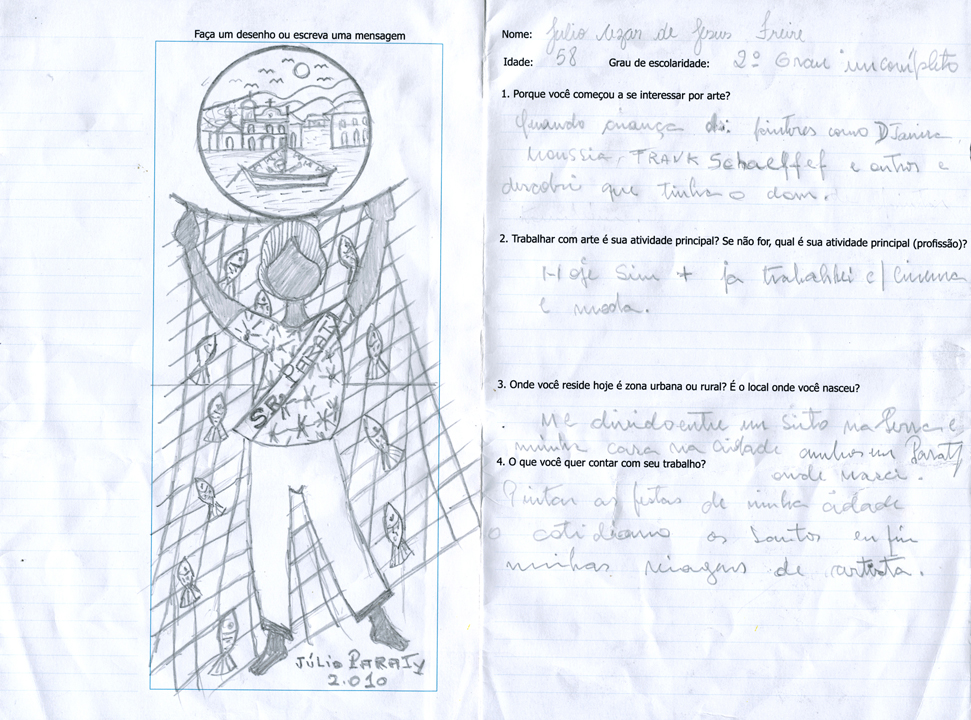 Faça um desenho ou escreva uma mensagem
SR. PARATY
JÚLIO PARATY
2.010
Nome: Julio Cezar de Jesus Freire
Idade: 58 Grau de escolaridade: 2º Grau incompleto
1. Porque você começou a se interessar por arte?
Quando criança pintores como Djanira,
FRANK Schaeffer e outros e
descobri que tinha o dom.
2. Trabalhar com arte é sua atividade principal? Se não for, qual é sua atividade principal (profissão)?
Hoje Sim + ja trabalhei c/ cinema
e moda.
3. Onde você reside hoje é zona urbana ou rural? É o local onde você nasceu?
Me divido entre um Sitio na Serra e
minha casa na cidade ambos em Paraty
onde nasci.
4. O que você quer contar com seu trabalho?
Pintar as festas de minha cidade
o cotidiano os Santos en fin
minhas viagens de artista.